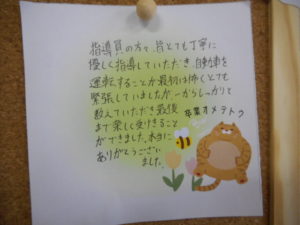 指導員の方で、皆とても丁寧に
優しく指導していただき、自動車を
運転することが最初は怖くとても
緊張していましたが一からしっかりと
教えていただき最後
まで楽しく受けきること
ができました。本当に
ありがとうござい
ました。
卒業オメデトウ